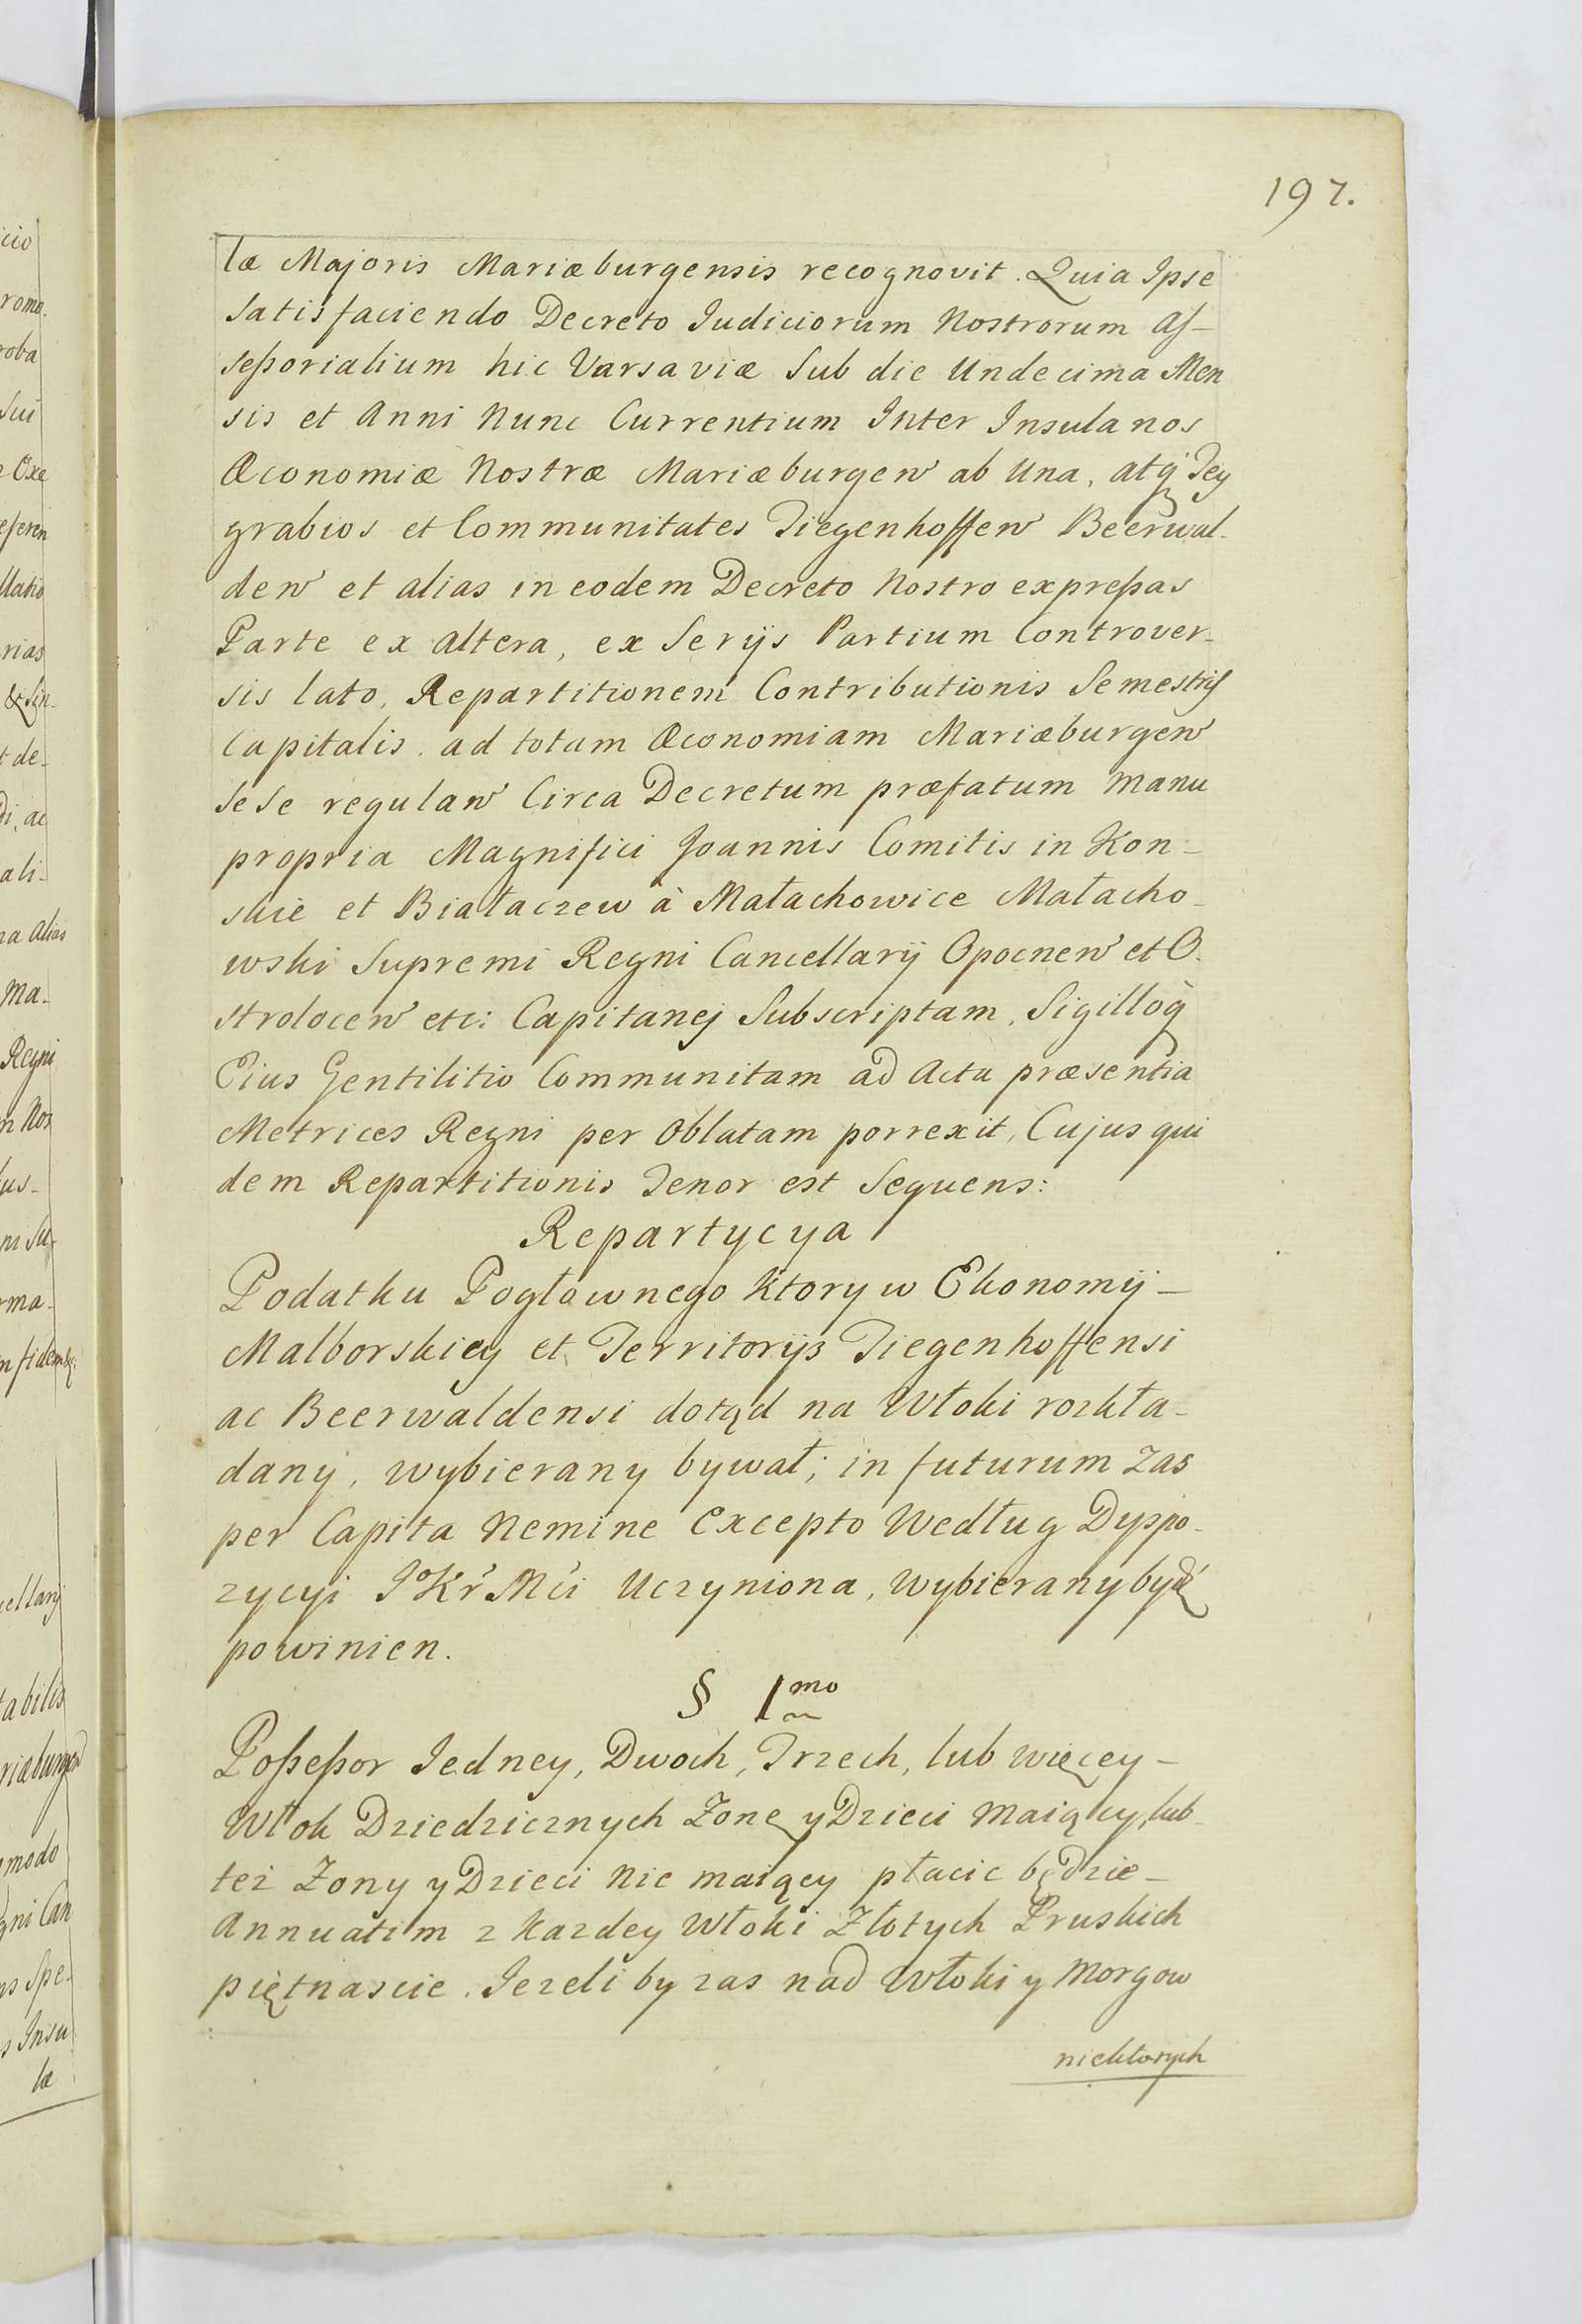 197.
læ Majoris Mariæburgensis recognovit. Quia Ipse
Satisfaciendo Decreto Iudiciorum Nostrorum Aſ-
seßorialium hic Varsaviæ Sub die Undecima Men
sis et Anni Nunc Currentium Inter Insulanos
Œconomiæ Nostræ Mariæburgen ab Una, atq Tey
grabios et Communitates Tiegenhoffen Beerwal-
den et alias in eodem Decreto Nostro expreßas
Parte ex altera, ex Serijs Partium Controver-
sis lato, Repartitionem Contributionis Semestris
Capitalis. ad totam Œconomiam Mariæburgen
sese regulan Circa Decretum præfatum manu
propria Magnifici Joannis Comitis in Kon-
skie et Białaczew à Małachowice Małacho-
wski Supremi Regni Cancellarij Opocnen et O.
strolocen etc: Capitanej Subscriptam, Sigilloq
Eius Gentilitio Communitam ad Acta præsentia
Metrices Regni per Oblatam porrexit, Cujus qui
dem Repartitionis Tenor est Sequens:
Repartycya
Podatku Pogłownego ktory w Ekonomij-
Malborskiey et Territorijs Tiegenhoffensi
ac Beerwaldensi dotąd na Włoki rozkła-
dany, wybierany bywał; in futurum zas
per Capita Nemine Excepto Według Dyspo-
zycyi JoKr Mci Uczyniona, wybierany bydź
powinien.
§ 1mo
Poßeßor Iedney, Dwoch, Trzech, lub więcey-
Włok Dziedzicznych Zonę y Dzieci Maiący, lub
też Zony y Dzieci Nie maiący płacic będzie-
Annuatim z kazdey Włoki Złotych Pruskich
piętnascie. Iezeli by zas nad Włoki y Morgow
niektorych
cio
romo.
roba
Sui
Oxe
eferen
llatio
rias
t de-
di, ac
ali-
na alias
Ma-
Regni
n Nos
us-
ni Su-
rma-
cellarij
tabilis
modo
gni Can
ns Spe-
s Insu
læ